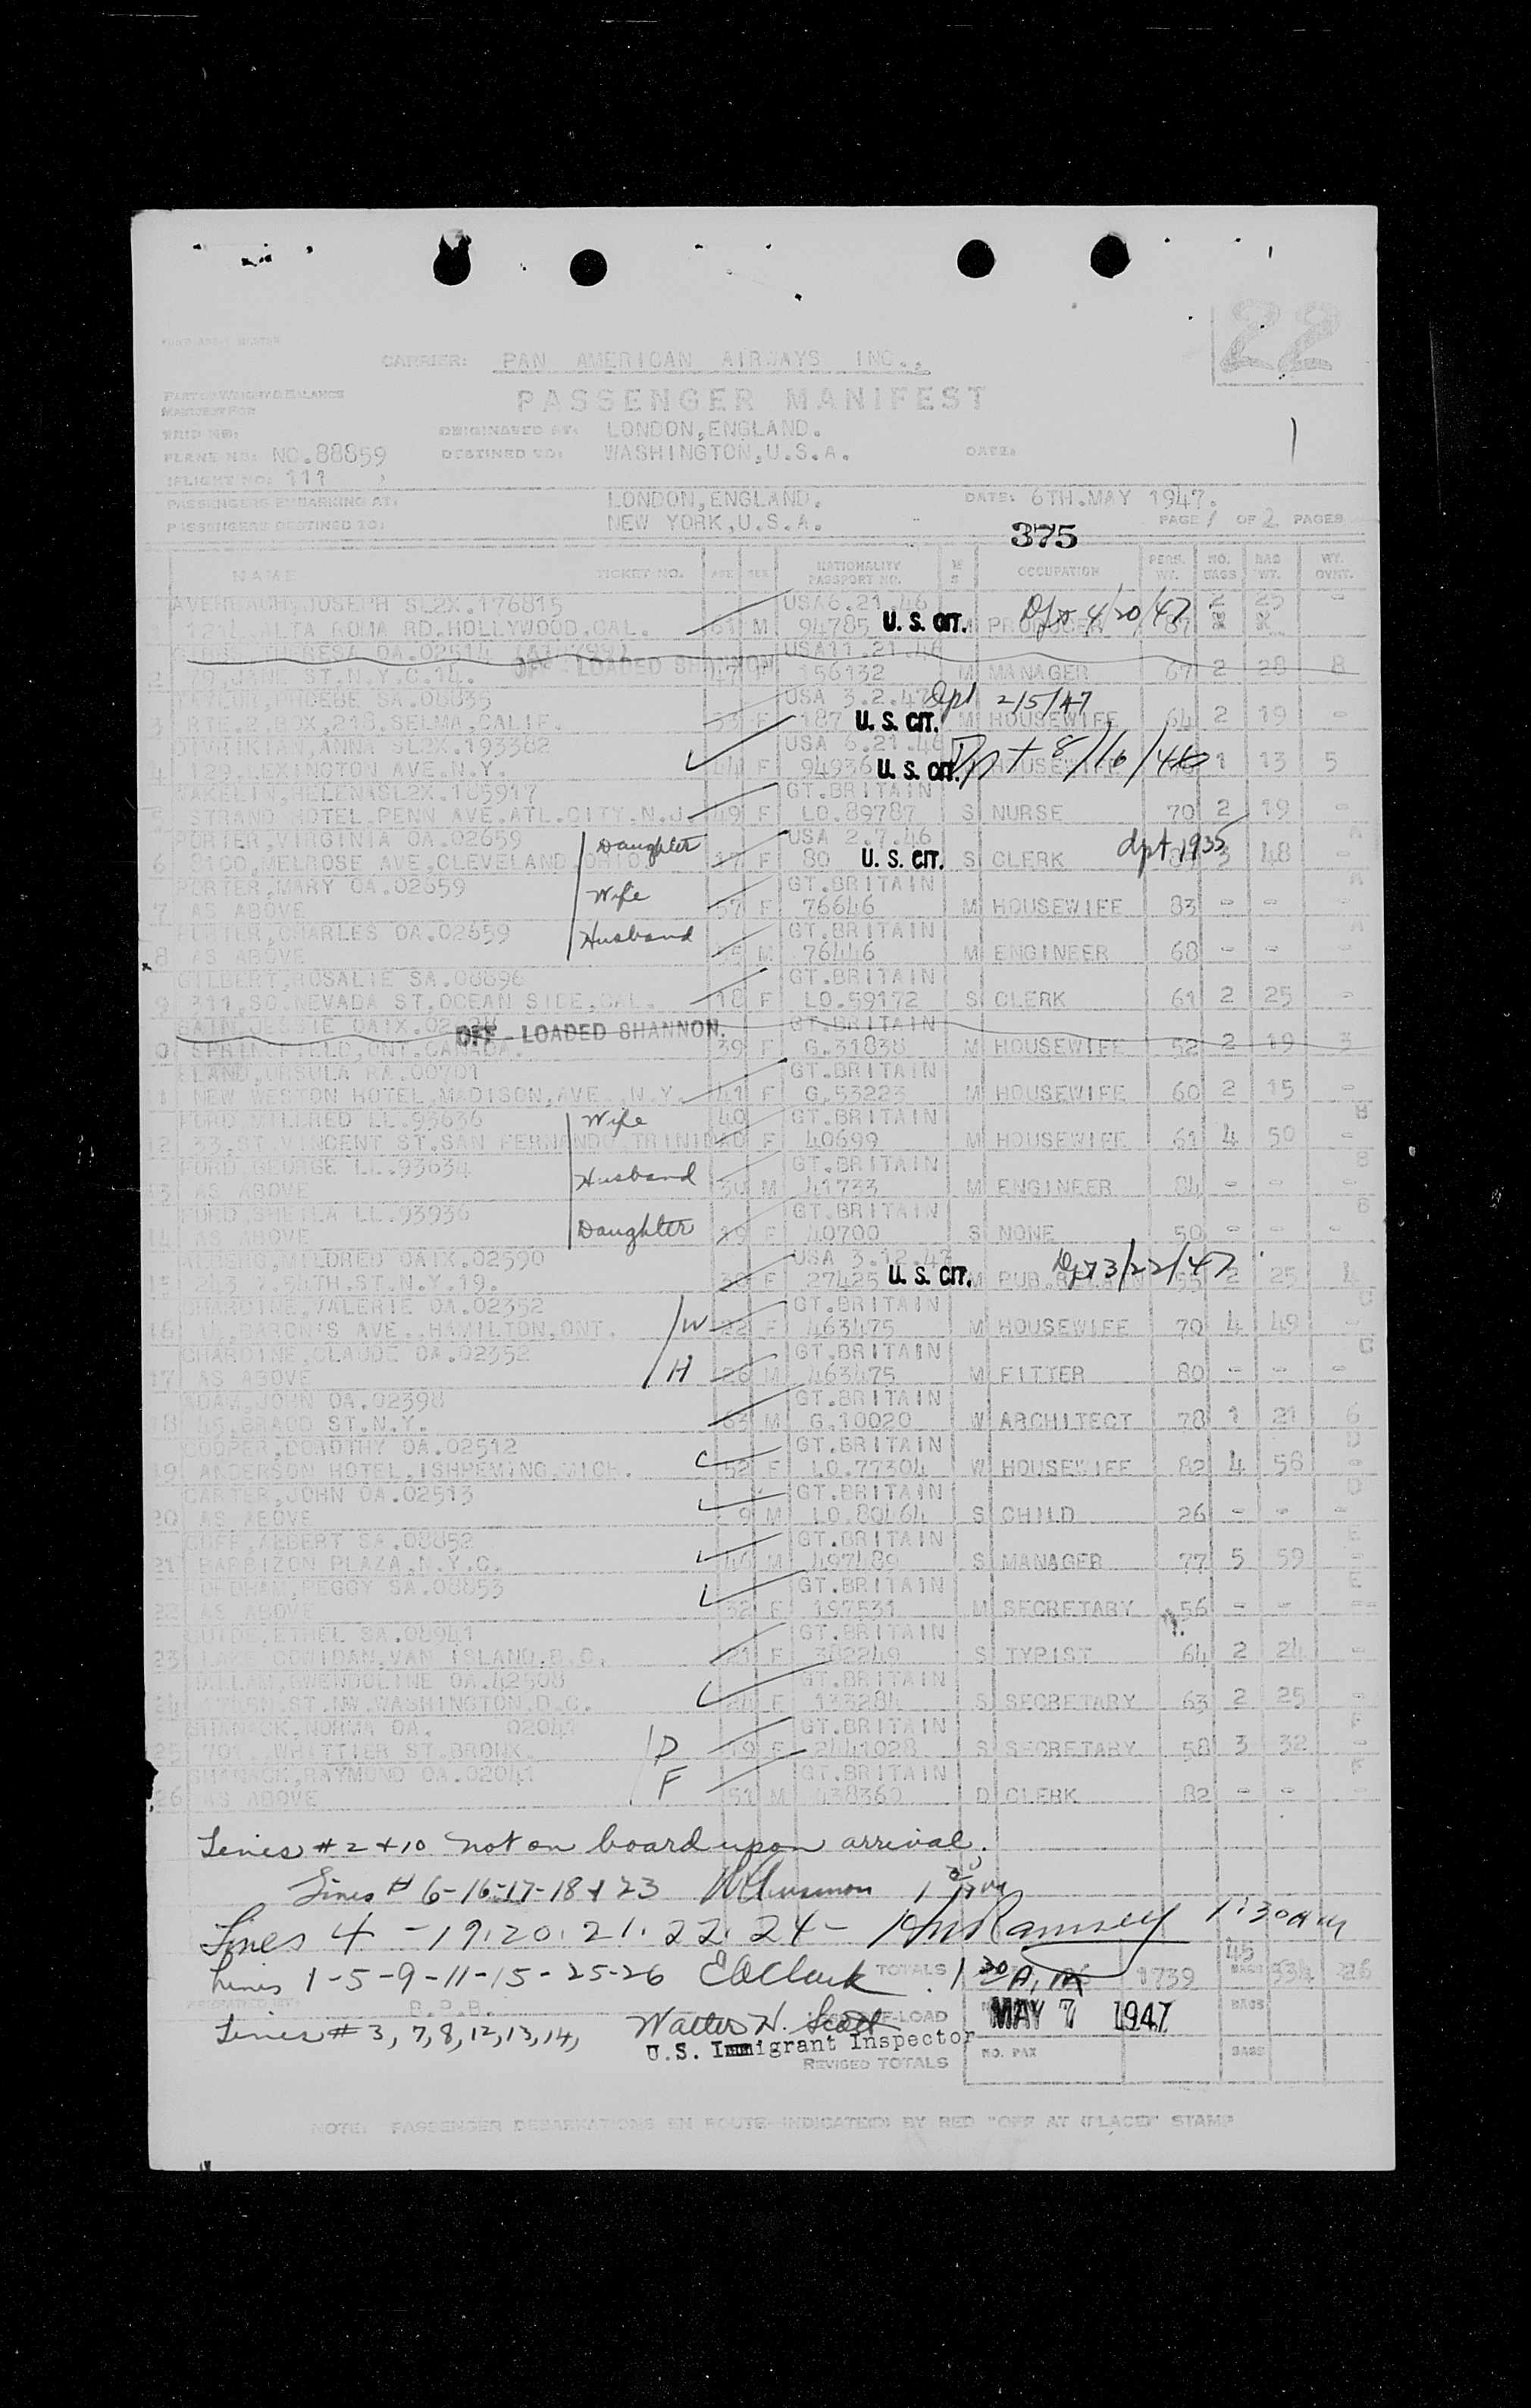 22
CARRIER: PAN AMERICAN AIRWAYS INC.,
PART OF WEIGHT & BALANCE
MANIFEST FOR
PASSENGER MANIFEST
TRIP NO:
ORIGINATED AT: LONDON, ENGLAND.
PLANE NO: NC.88859 DESTINED TO: WASHINGTON, U.S.A. DATE:
FLIGHT NO: 111
PASSENGERS EMBARKING AT: LONDON, ENGLAND. DATE: 6TH.MAY 1947.
PASSENGERS DESTINED TO: NEW YORK, U.S.A. PAGE 1 OF 2 PAGES
375
NAME TICKET NO. AGE SEX NATIONALITY PASSPORT NO. M S OCCUPATION PERS. WT. NO. BAGS BAG WT. WT. OVHT.
JOSEPH SL2X.176815 USA 6.21.46 2 25 -
ALTA ROMA RD.HOLLYWOOD,CAL. M 94785 U.S. CIT. M PRODUCER Dpt 4/20/47
THERESA OA.02514 USA 11.21.46
2 ST.N.Y.C.14. OFF-LOADED SHANNON 47 F 156132 M MANAGER 67 2 28 8
PHOEBE SA.08835 USA 3.2.47 Dpt 2/5/47
BOX,298,SELMA,CALIF. 33 F 187 U.S. CIT. M HOUSEWIFE 64 2 19 -
ANNA SL2X.193382 USA 6.21.46 Dpt 8/16/46
4 129,LEXINGTON AVE.N.Y. 44 F 94936 U.S. CIT. HOUSEWIFE 1 13 5
HELENA SL2X.185917 GT.BRITAIN
5 STRAND HOTEL.PENN AVE.ATL.CITY.N.J. 49 F LO.89787 S NURSE 70 2 19 -
PORTER,VIRGINIA OA.02659 Daughter USA 2.7.46 A
6 MELROSE AVE,CLEVELAND,OHIO 17 F 80 U.S. CIT. S CLERK dpt 1935 3 48 -
PORTER,MARY OA.02659 Wife GT.BRITAIN A
7 AS ABOVE 57 F 76646 M HOUSEWIFE 83 - - -
PORTER,CHARLES OA.02659 Husband GT.BRITAIN A
8 AS ABOVE M 76446 M ENGINEER 68 - - -
GILBERT,ROSALIE SA.08696 GT.BRITAIN
9 311,SO.NEVADA ST.OCEAN SIDE,CAL. 18 F LO.59172 S CLERK 61 2 25 -
OFF-LOADED SHANNON. GT.BRITAIN
0 SPRINGFIELD,ONT.CANADA. 39 F G.31838 M HOUSEWIFE 52 2 19 3
URSULA RA.00701 GT.BRITAIN
1 NEW WESTON HOTEL,MADISON,AVE.,N.Y. 41 F G.53223 M HOUSEWIFE 60 2 15 -
FORD,MILDRED LL.93636 Wife 40 GT.BRITAIN B
2 33,ST.VINCENT ST.SAN FERNANDO TRINIDAD F 40699 M HOUSEWIFE 61 4 50 -
FORD GEORGE LL.93634 Husband GT.BRITAIN B
3 AS ABOVE M 41733 M ENGINEER 84 - - -
FORD,SHEILA LL.93936 Daughter GT.BRITAIN B
AS ABOVE 19 F 40700 S NONE 50 - - -
MILDRED OAIX.02590 USA 3.12.47 Dpt 3/22/47
15 54TH.ST.N.Y.19. F 27425 U.S. CIT. M 55 2 25 4
CHARDINE,VALERIE OA.02352 W GT.BRITAIN C
16 AVE.,HAMILTON,ONT. 22 F 463475 M HOUSEWIFE 70 4 49 -
CHARDINE,CLAUDE OA.02352 H GT.BRITAIN C
17 AS ABOVE 26 M 463475 M FITTER 80 - - -
ADAM,JOHN OA.02398 GT.BRITAIN
18 BROAD ST.N.Y. 63 M G.10020 W ARCHITECT 78 1 21 6
COOPER,DOROTHY OA.02512 GT.BRITAIN D
19 ANDERSON HOTEL.ISHPEMING,MICH. 52 F LO.77304 W HOUSEWIFE 82 4 58 -
CARTER,JOHN OA.02513 GT.BRITAIN D
20 AS ABOVE 9 M LO.80464 S CHILD 26 - - -
ALBERT SA.08852 GT.BRITAIN E
21 BARBIZON PLAZA,N.Y.C. 46 M 497489 S MANAGER 77 5 59 -
FORDHAM,PEGGY SA.08853 GT.BRITAIN E
22 AS ABOVE 32 F 197531 M SECRETARY 56 - - --
ETHEL SA.08941 GT.BRITAIN
23 LAKE COWIDAN,VAN ISLAND.B.C. 21 F 382249 S TYPIST 64 2 24 -
GWENDOLINE OA.42508 GT.BRITAIN
24 ST.NW.WASHINGTON.D.C. 24 F 133284 S SECRETARY 63 2 25 -
SHANACK,NORMA OA. 02041 D GT.BRITAIN F
25 701,WHITTIER ST.BRONX. 19 F 2441028 S SECRETARY 58 3 32 -
SHANACK,RAYMOND OA.02041 F GT.BRITAIN F
26 AS ABOVE 51 M 438360 D CLERK 82 - -
Lines # 2 + 10 not on board upon arrival.
Lines # 6-16-17-18 + 23
Lines 4 - 19. 20. 21. 22. 24 - Ramsey 1:30 AM
Lines 1-5-9-11-15-25-26 E A Clark TOTALS 1 30 A.M. 1739 45 BAGS 934 26
Lines # 3, 7, 8, 12, 13, 14, Walter H. Scott MAY 7 1947 BAGS
U.S. Immigrant Inspector
REVISED TOTALS NO. PAX BAGS
NOTE: PASSENGER DEBARKATIONS EN ROUTE INDICATED BY RED "OFF AT (PLACE)" STAMP